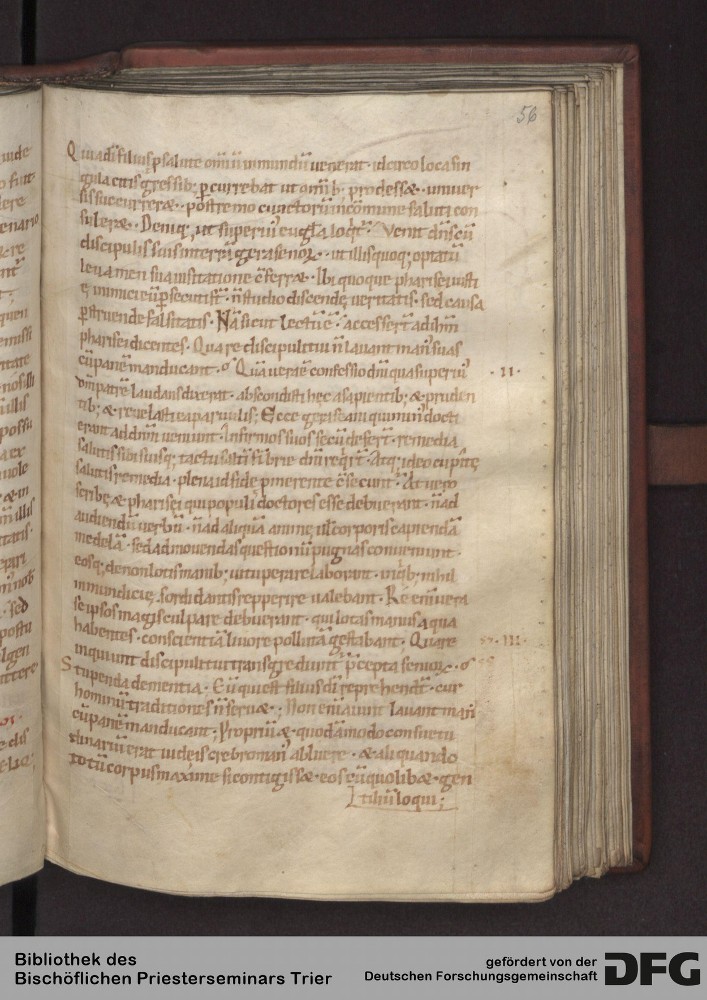 56
Quia di filius p salute omiũ in mundũ venerat · idcirco loca sin
gula citis gressib; pcurrebat ut omib; prodesset · univer
sis succurreret · postremo cunctorũ in cõmune saluti con
suleret · Deniq; ut superius eugl̃a loqt̃ · Venit dñs cũ
discipulis suis in terrã genesareth · ut illis quoq; optatũ
levamen sua visitatione cferret · Ibi quoque pharisei iusti
tię inimici eũ psecuti st · ñ studio discendę veritatis · sed causa
pstruende falsitatis · Nã sicut lectũ ẽ · accessert ad ihm
pharisei dicentes · Quare discipuli tui ñ lavant man suas
cũ panẽ manducant · Quã vera ẽ confessio dni qua superius
· II ·
dm patrẽ laudans dixerat · abscondisti hec a sapientib; & pruden
tib; & revelasti ea parvulis; Ecce geneseani qui minus docti
erant ad dnm veniunt · Infirmos suos secũ defert · remedia
salutis sibi suisq; tactu saltĩ fibrie dni reqrt · Atq; ideo cupitę
salutis remedia · plena id fide pmerente csecunt · At vero
scribę & pharisei qui populi doctores esse debuerant · ñ ad
audiendũ verbũ · ñ ad aliquã animę ul corporis capiendã
medelã · sed ad movendas questionũ pugnas conveniunt ·
eosq; de non lotis manib; vituperare laborant · in qb; nihil
inmundicię, sordidantis repperire valebant · Re enim vera
se ipsos magis culpare debuerant · qui lotas manus aqua
habentes · conscientiã livore pollutã gestabant; Quare
· III ·
inquiunt discipuli tui transgrediunt pcepta senior ·
Stupenda dementia · Eũ qui est filius di reprehendt · cur
hominũ traditiones ñ servet; Non enĩ aiunt lavant man
cũ panẽ manducant; Propriũ & quodãmodo consuetu
dinariũ erat iudeis crebro man abluere · & aliquando
totũ corpus maxime si contigisset · eos cũ quolibet · gen
tiliũ loqui;
Bibliothek des
Bischöflichen Priesterseminars Trier
gefördert von der
Deutschen Forschungsgemeinschaft
DFG